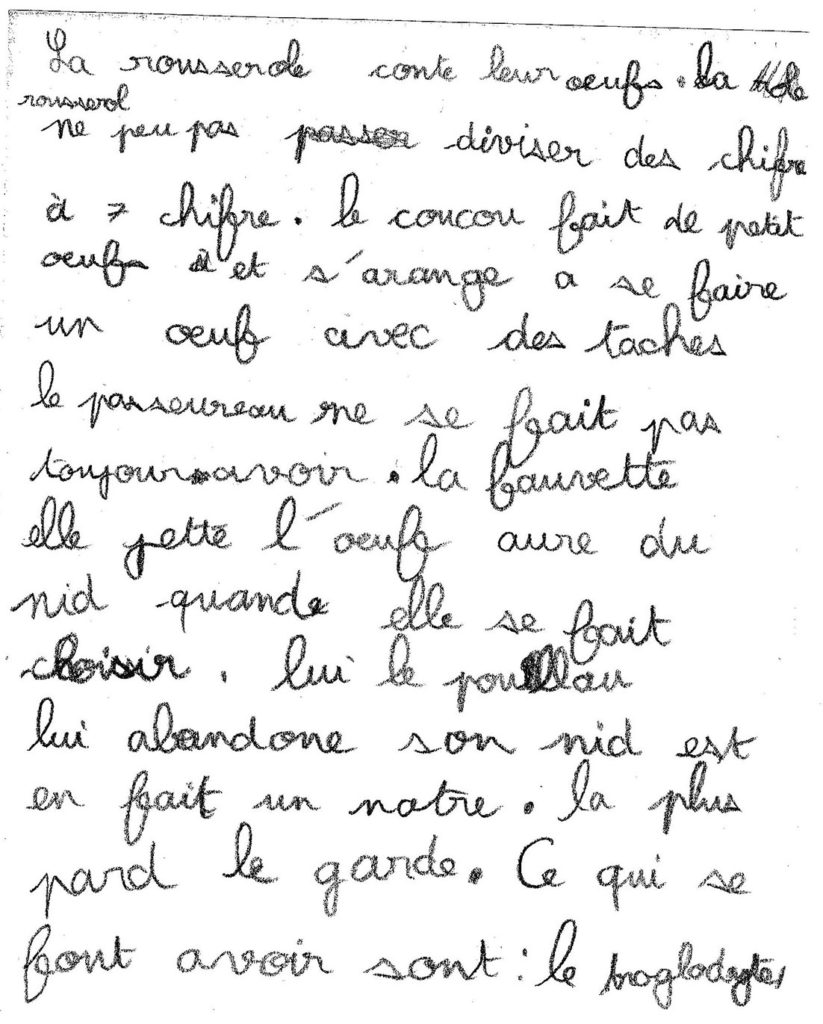 La rousserole conte leur oeufs. la
rousserol
ne peu pas passer diviser des chifre
à 7 chifre. le coucou fait de petit
oeufs et s'arange a se faire
un oeuf avec des taches
le passeureau ne se fait pas
toujour avoir. la fauvette
elle jette l'oeuf aure du
nid quande elle se fait
choisir. lui le pouillau
lui abandone son nid est
en fait un notre. la plus
pard le garde. Ce qui se
font avoir sont : le troglodyte,